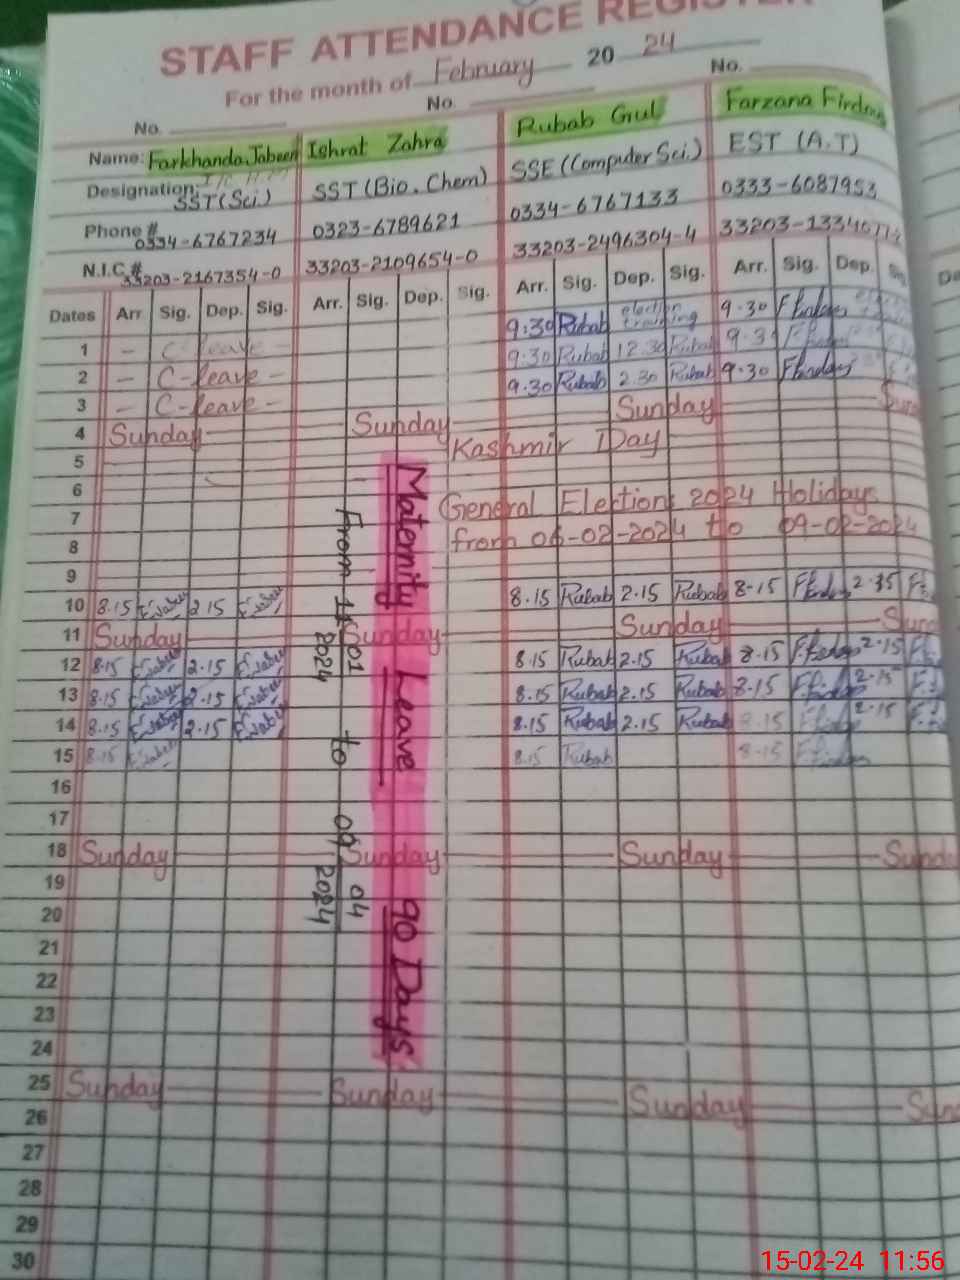 STAFF ATTENDANCE REGISTER
For the month of February 20 24
No. No. No.
Name: Farkhanda Jabeen Ishrat Zahra Rubab Gul Farzana Firdous
Designation: SST (Sci.) SST (Bio. Chem) SSE (Computer Sci.) EST (A.T)
Phone # 0334-6767234 0323-6789621 0334-6767133 0333-6087953
N.I.C.# 33203-2167354-0 33203-2109654-0 33203-2496304-4
Dates Arr. Sig. Dep. Sig. Arr. Sig. Dep. Sig. Arr. Sig. Dep. Sig. Arr. Sig. Dep.
9:30 Rubab election training 9.30
1 - C-leave 9:30 Rubab 12.30 Rubab 9.3
2 - C-leave - 9.30 Rubab 2.30 Rubab 9.30
3 - C-leave - Sunday
4 Sunday Sunday
5 Kashmir Day
6 General Elections 2024 Holidays
7 from 06-02-2024 to 09-02-2024
8
9
10 8.15 2.15 8.15 Rubab 2.15 Rubab 8-15 2.35
11 Sunday Sunday Sunday
12 8.15 2.15 8.15 Rubab 2.15 Rubab 8-15 2-15
13 8.15 2.15 8.15 Rubab 2.15 Rubab 8-15 2-15
14 8.15 2.15 8.15 Rubab 2.15 Rubab 8.15 2-15
15 8.15 8.15 Rubab 8-15
16
17
18 Sunday Sunday Sunday Sunday
19
20
21
22
23
24
25 Sunday Sunday Sunday
26
27
28
29
30
Maternity Leave 90 Days
01 2024 to 09 04 2024
15-02-24 11:56